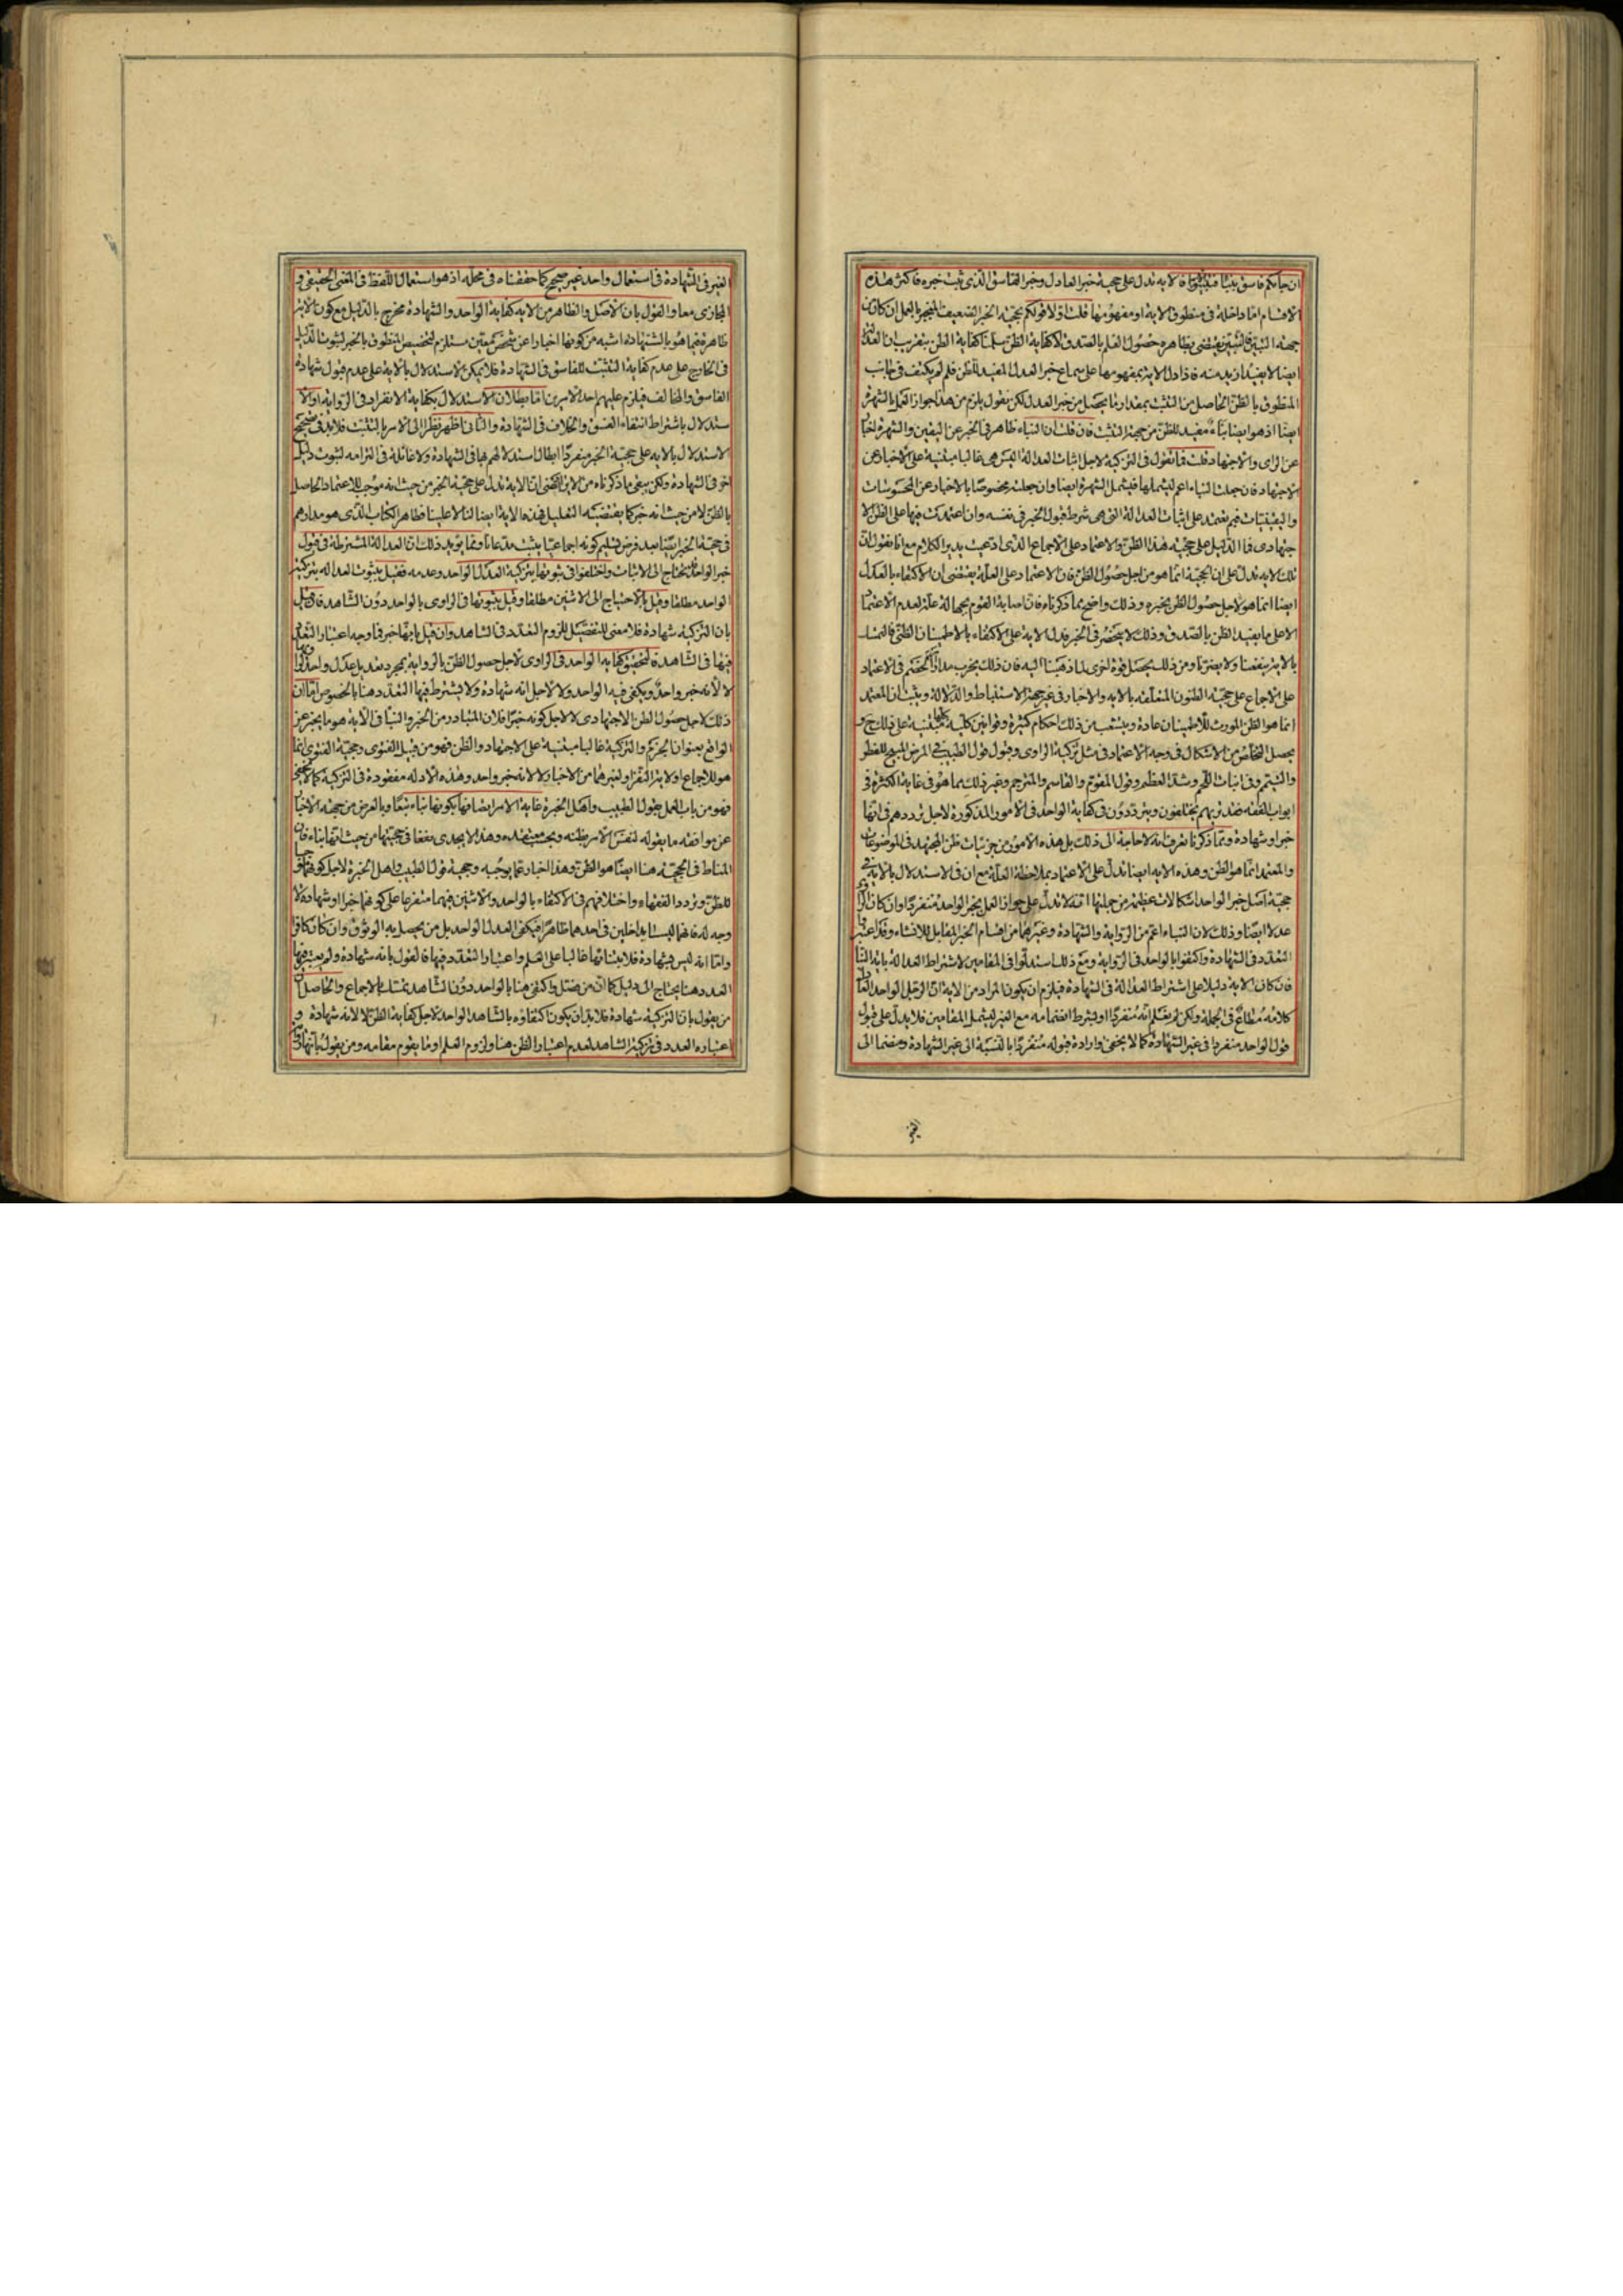 ان جاءكم فاسق بنبأ فتبينوا فالايه تدل على حجية خبر العادل وخبر الفاسق الذى تثبت خبره فاكثر هذه
الاقسام اما داخلة فى منطوق الاية او مفهومها قلت اولا قولكم بحجية الخبر الضعيف المنجبر بالعمل ان كان من
جهة التثبت فالتثبت يقتضى بظاهره حصول العلم بالصدق لا كفاية الظن سلمنا كفاية الظن بتقريب ان العدل
ايضا لا يفيد ازيد منه فاذا دل الاية بمفهومها على سماع خبر العدل المفيد للظن فلم لم يكتف فى جانب
المنطوق بالظن الحاصل من التثبت بمقدار ما يحصل من خبر العدل لكن نقول يلزم من هذا جواز العمل بالشهرة
ايضا اذ هو ايضا نباء مفيد للظن من جهة التثبت فان قلت ان النباء ظاهر فى الخبر عن اليقين والشهرة اخبار
عن الراى والاجتهاد قلت فما تقول فى التزكية لاجل اثبات العدالة اليس هى غالبا مبتنية على الاخبار عن
الاجتهاد فان جعلت النباء اعم ليشملها فيشمل الشهرة ايضا وان جعلته مخصوصا بالاخبار عن المحسوسات
واليقينيات فبم تعتمد على اثبات العدالة التى هى شرط قبول الخبر فى نفسه وان اعتمدت فيها على الظن الا
جتهادى فما الدليل على حجية هذا الظن والاعتماد على الاجماع الذى ادعيت يدير الكلام مع انا نقول ان
تلك الاية تدل على ان الحجية انما هو من اجل حصول الظن فان الاعتماد على العلة يقتضى ان الاكتفاء بالعدل
ايضا انما هو لاجل حصول الظن بخبره وذلك واضح مما ذكرناه فان اصابة القوم بجهالة علة لعدم الاعتماد
الا على ما يفيد الظن بالصدق وذلك لا ينحصر فى الخبر فدل الاية على الاكتفاء بالاطمينان الظنى فالتمسك
بالاية ينفعنا ولا يضرنا ومن ذلك يحصل قوة اخرى لما ذهبنا اليه فان ذلك يخرب مدار الخصم فى الاعتماد
على الاجماع على حجية الظنون المتعلقة بالاية والاخبار فى غير جهة الاستنباط والدلالة ويثبت ان المعتمد
انما هو الظن المورث للاطمينان عادة وينشعب من ذلك احكام كثيرة وقوانين كلية مبتنية على ذلك ح و
يحصل التخلص من الاشكال فى وجه الاعتماد فى مثل تزكية الراوى وقبول قول الطبيب فى المرض المبيح للفطر
والتيمم وفى انبات اللحم وشد العظم وقول المقوم والقاسم والمترجم وغير ذلك مما هو فى غاية الكثرة فى
ابواب الفقه فقد تريهم يختلفون ويترددون فى كفاية الواحد فى الامور المذكورة لاجل ترددهم فى انها
خبر او شهادة ومما ذكرنا تعرف انه لا حاجة الى ذلك بل هذه الامور من جزئيات ظن المجتهد فى الموضوعات
والمعتمد انما هو الظن وهذه الاية ايضا تدل على الاعتماد بملاحظة العلة مع ان فى الاستدلال بالاية فى
حجية اصل خبر الواحد اشكالات عظيمة من جملتها انه لا تدل على جواز العمل بخبر الواحد منفردا وان كان الراوى
عدلا ايضا وذلك لان النباء اعم من الرواية والشهادة وغيرهما من اقسام الخبر المقابل للانشاء وقد اعتبروا
التعدد فى الشهادة واكتفوا بالواحد فى الرواية ومع ذلك استدلوا فى المقامين لاشتراط العدالة باية النباء
فان كان الاية دليلا على اشتراط العدالة فى الشهادة فيلزم ان يكون المراد من الاية ان الرجل الواحد العادل
كلامه مطاع فى الجملة ولكن لم يعلم انه منفردا او بشرط انضمامه مع الغير ليشمل المقامين فلا يدل على قبول
قول الواحد منفردا فى غير الشهادة كما لا يخفى وارادة قبوله منفردا بالنسبة الى غير الشهادة ومنضما الى
الغير فى الشهادة فى استعمال واحد غير صحيح كما حققناه فى محله اذ هو استعمال اللفظ فى المعنى الحقيقى و
المجازى معا والقول بان الاصل والظاهر من الاية كفاية الواحد والشهادة مخرج بالدليل مع كون الاية
ظاهرة فيما هو بالشهادة اشبه من كونها اخبارا عن شخص معين مستلزم لتخصيص المنطوق بالخبر لثبوت الدليل
فى الخارج على عدم كفاية التثبت للفاسق فى الشهادة فلا يمكن الاستدلال بالاية على عدم قبول شهادة
الفاسق والمخالف فيلزم عليهم احد الامرين اما بطلان الاستدلال بكفاية الانفراد فى الرواية او الا
ستدلال باشتراط انتفاء الفسق والخلاف فى الشهادة والثانى اظهر نظرا الى الامر بالتثبت فلابد فى تصحيح
الاستدلال بالاية على حجية الخبر منفردا ابطال استدلالهم بها فى الشهادة ولا غائلة فى التزامه لثبوت دليل
اخر فى الشهادة ولكن يبقى ما ذكرناه من الاية تدل على حجية الخبر من حيث انه موجب للاعتماد الحاصل
بالظن لا من حيث انه خبر كما يقتضيه التعليل فهذه الاية ايضا لنا لا علينا فظاهر الكتاب الذى هو مدارهم
فى حجية الخبر ايضا بعد فرض تسليم كونه اجماعيا يثبت مدعانا ومما يؤيد ذلك ان العدالة المشترطة فى قبول
خبر الواحد يحتاج الى الاثبات واختلفوا فى ثبوتها بتزكية العدل الواحد وعدمه فقيل بثبوت العدالة بتزكية
الواحد مطلقا وقيل بالاحتياج الى الاثنين مطلقا وقيل بثبوتها فى الراوى بالواحد دون الشاهد فان قيل
بان التزكية شهادة فلا معنى للتفصيل للزوم التعدد فى الشاهد وان قيل بانها خبر فما وجه اعتبار التعدد
فيها فى الشاهد فالتحقيق كفاية الواحد فى الراوى لاجل حصول الظن بالرواية بمجرد تعديل عدل واحد
لا لانه خبر واحد ويكفى فيه الواحد ولا لاجل انه شهادة ولا يشترط فيها التعدد هنا بالخصوص اما ان
ذلك لاجل حصول الظن الاجتهادى لا لاجل كونه خبرا فلان المتبادر من الخبر والنبأ فى الاية هو ما يخبر عن
الواقع بعنوان الجزم والتزكية غالبا مبتنية على الاجتهاد والظن فهو من قبيل الفتوى وحجية الفتوى انما
هو للاجماع او لاية النفر او لغيرهما من الاخبار لا لانه خبر واحد وهذه الادلة مفقودة فى التزكية كما لا يخفى
فهو من باب العمل بقول الطبيب واهل الخبرة غاية الامر اتصافها بكونها نباء تبعا وبالعرض من جهة الاخبار
عن موافقة ما يقوله لنفس الامر بظنه وبحسب معتقده وهذا لا يجدى نفعا فى حجيتها من حيث انها نباء فان
المناط فى الحجية هنا ايضا هو الظن وهذا اخبار عما يوجبه وحجية قول الطبيب واهل الخبرة لاجل كونهما موجبا
للظن وتردد الفقهاء واختلافهم فى الاكتفاء بالواحد والاثنين فيهما متفرعا على كونهما خبرا او شهادة لا
وجه له فانهما ليستا بداخلين فى احدهما ظاهرا فيكفى العدل الواحد بل من يحصل به الوثوق وان كان كافرا
واما انه ليس بشهادة فلابتنائها غالبا على العلم واعتبار التعدد فيها فالقول بانه شهادة ولم يعتبر فيها
العدد هنا يحتاج الى دليل كما ان من فصل واكتفى هنا بالواحد دون الشاهد تمسك بالاجماع والحاصل ان
من يقول بان التزكية شهادة فلابد ان يكون اكتفاؤه بالشاهد الواحد لاجل كفاية الظن لا لانه شهادة و
اعتباره العدد فى تزكية الشاهد لعدم اعتبار الظن هنا ولزوم العلم او ما يقوم مقامه ومن يقول بانها